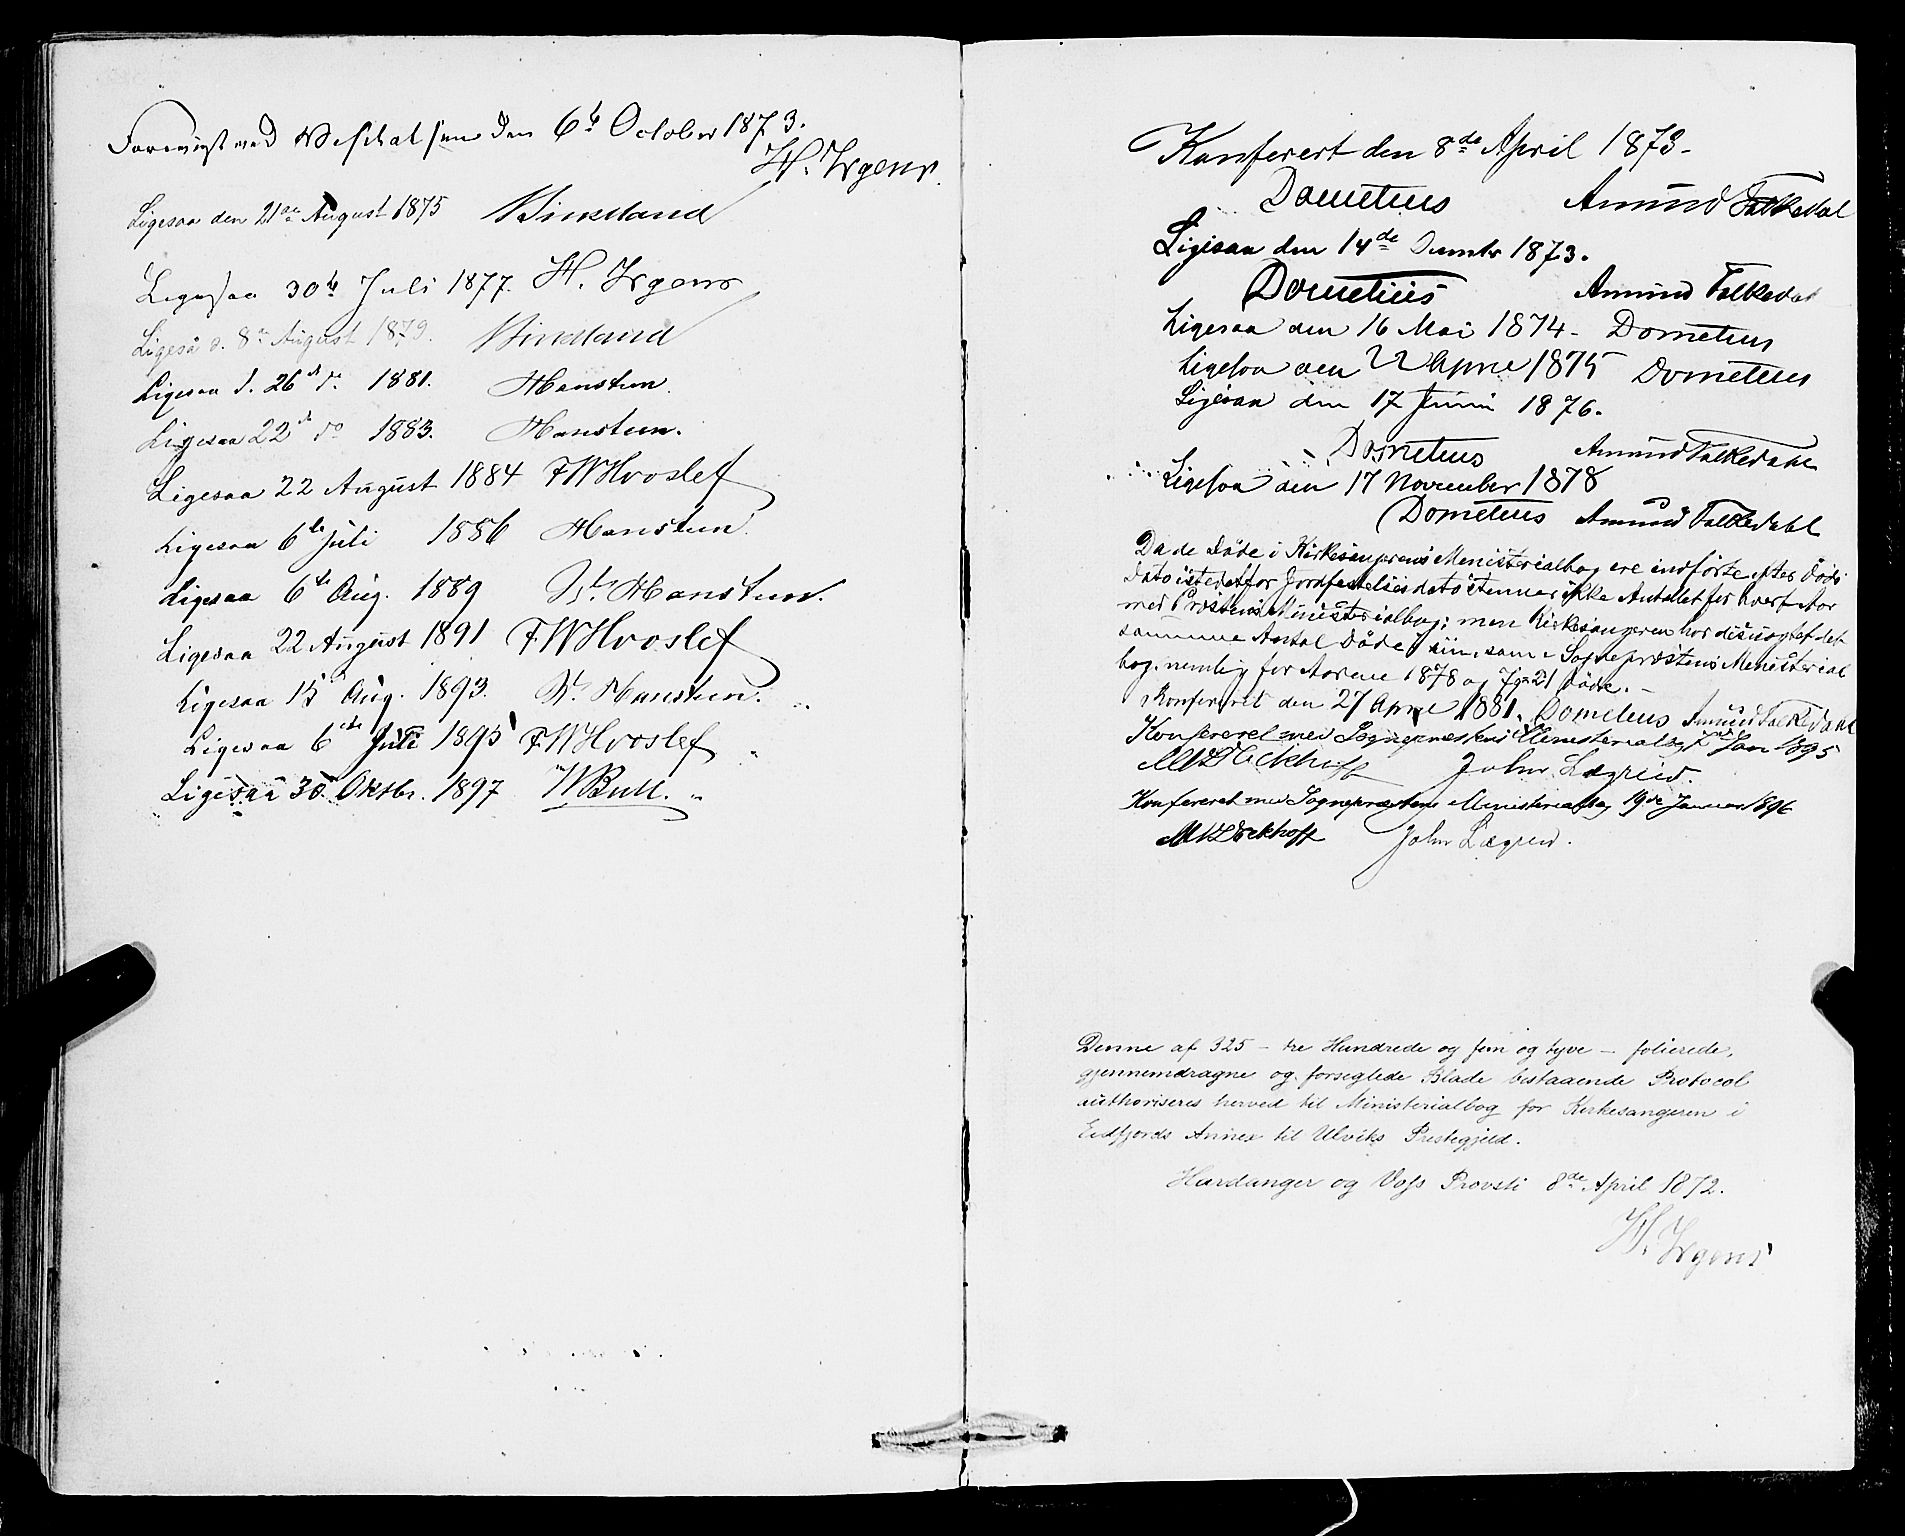 Forevist ved Visitatsen den 6te October 1873.
H. Irgens.
Ligesaa den 21de August 1875 Vindland
Ligesaa 30te Juli 1877. H. Irgens
Ligeså d. 8de August 1879. Vindland
Ligesaa d. 26de do 1881. Hansteen.
Ligesaa 22de do 1883. Hansteen.
Ligesaa 22 August 1884 FWHvoslef
Ligesaa 6te Juli 1886 Hansteen.
Ligesaa 6te Aug. 1889 Hansteen.
Ligesaa 22 August 1891 F.WHvoslef
Ligesaa 15 Aug. 1893. Hansteen.
Ligesaa 6te Juli 1895 F.WHvoslef
Ligesaa 30. Oktbr. 1897 WBull.
Konferert den 8de April 1873-
Dometius Amund Falkedal
Ligesaa den 14de 1873.
Dometius Amund Falkedal
Ligesaa den 16 Mai 1874- Dometius
Ligesaa den 22 April 1875 Dometius
Ligesaa den 17 Juni 1876.
Dometius Amund Falkedahl
Ligesaa den 17 November 1878
Dometius Amund Falkedahl
Da de Døde i Kirkesangerens Ministerialbog ere indførte efter Døds
dato istedetfor Jordfestelsesdato stemmer ikke Antallet for hvert Aar
med Prestens Ministerialbog; men Kirkesangeren har desuagtet det
samme Antal Døde som Sognepræstens Ministerial
bog, nemlig for Aarene 1878 og 79 21 døde. -
Konfereret den 27 April 1881. Dometius Amund Falkedahl
Konfereret med Sognepræstens Ministerialbog 7de Jan 1895
Eckhoff John Lægreid.
Konfereret med Sognepræstens Ministerialbog 19de Januar 1896
Eckhoff John Lægreid.
Denne af 325 - tre Hundrede og fem og tyve - folierede,
gjennemdragne og forseglede Blade bestaaende Protocol
authoriseres herved til Ministerialbog for Kirkesangeren i
Eidfjords Annex til Ulviks Prestegjeld.
Hardanger og Voss Provsti 8de April 1872.
H. Irgens